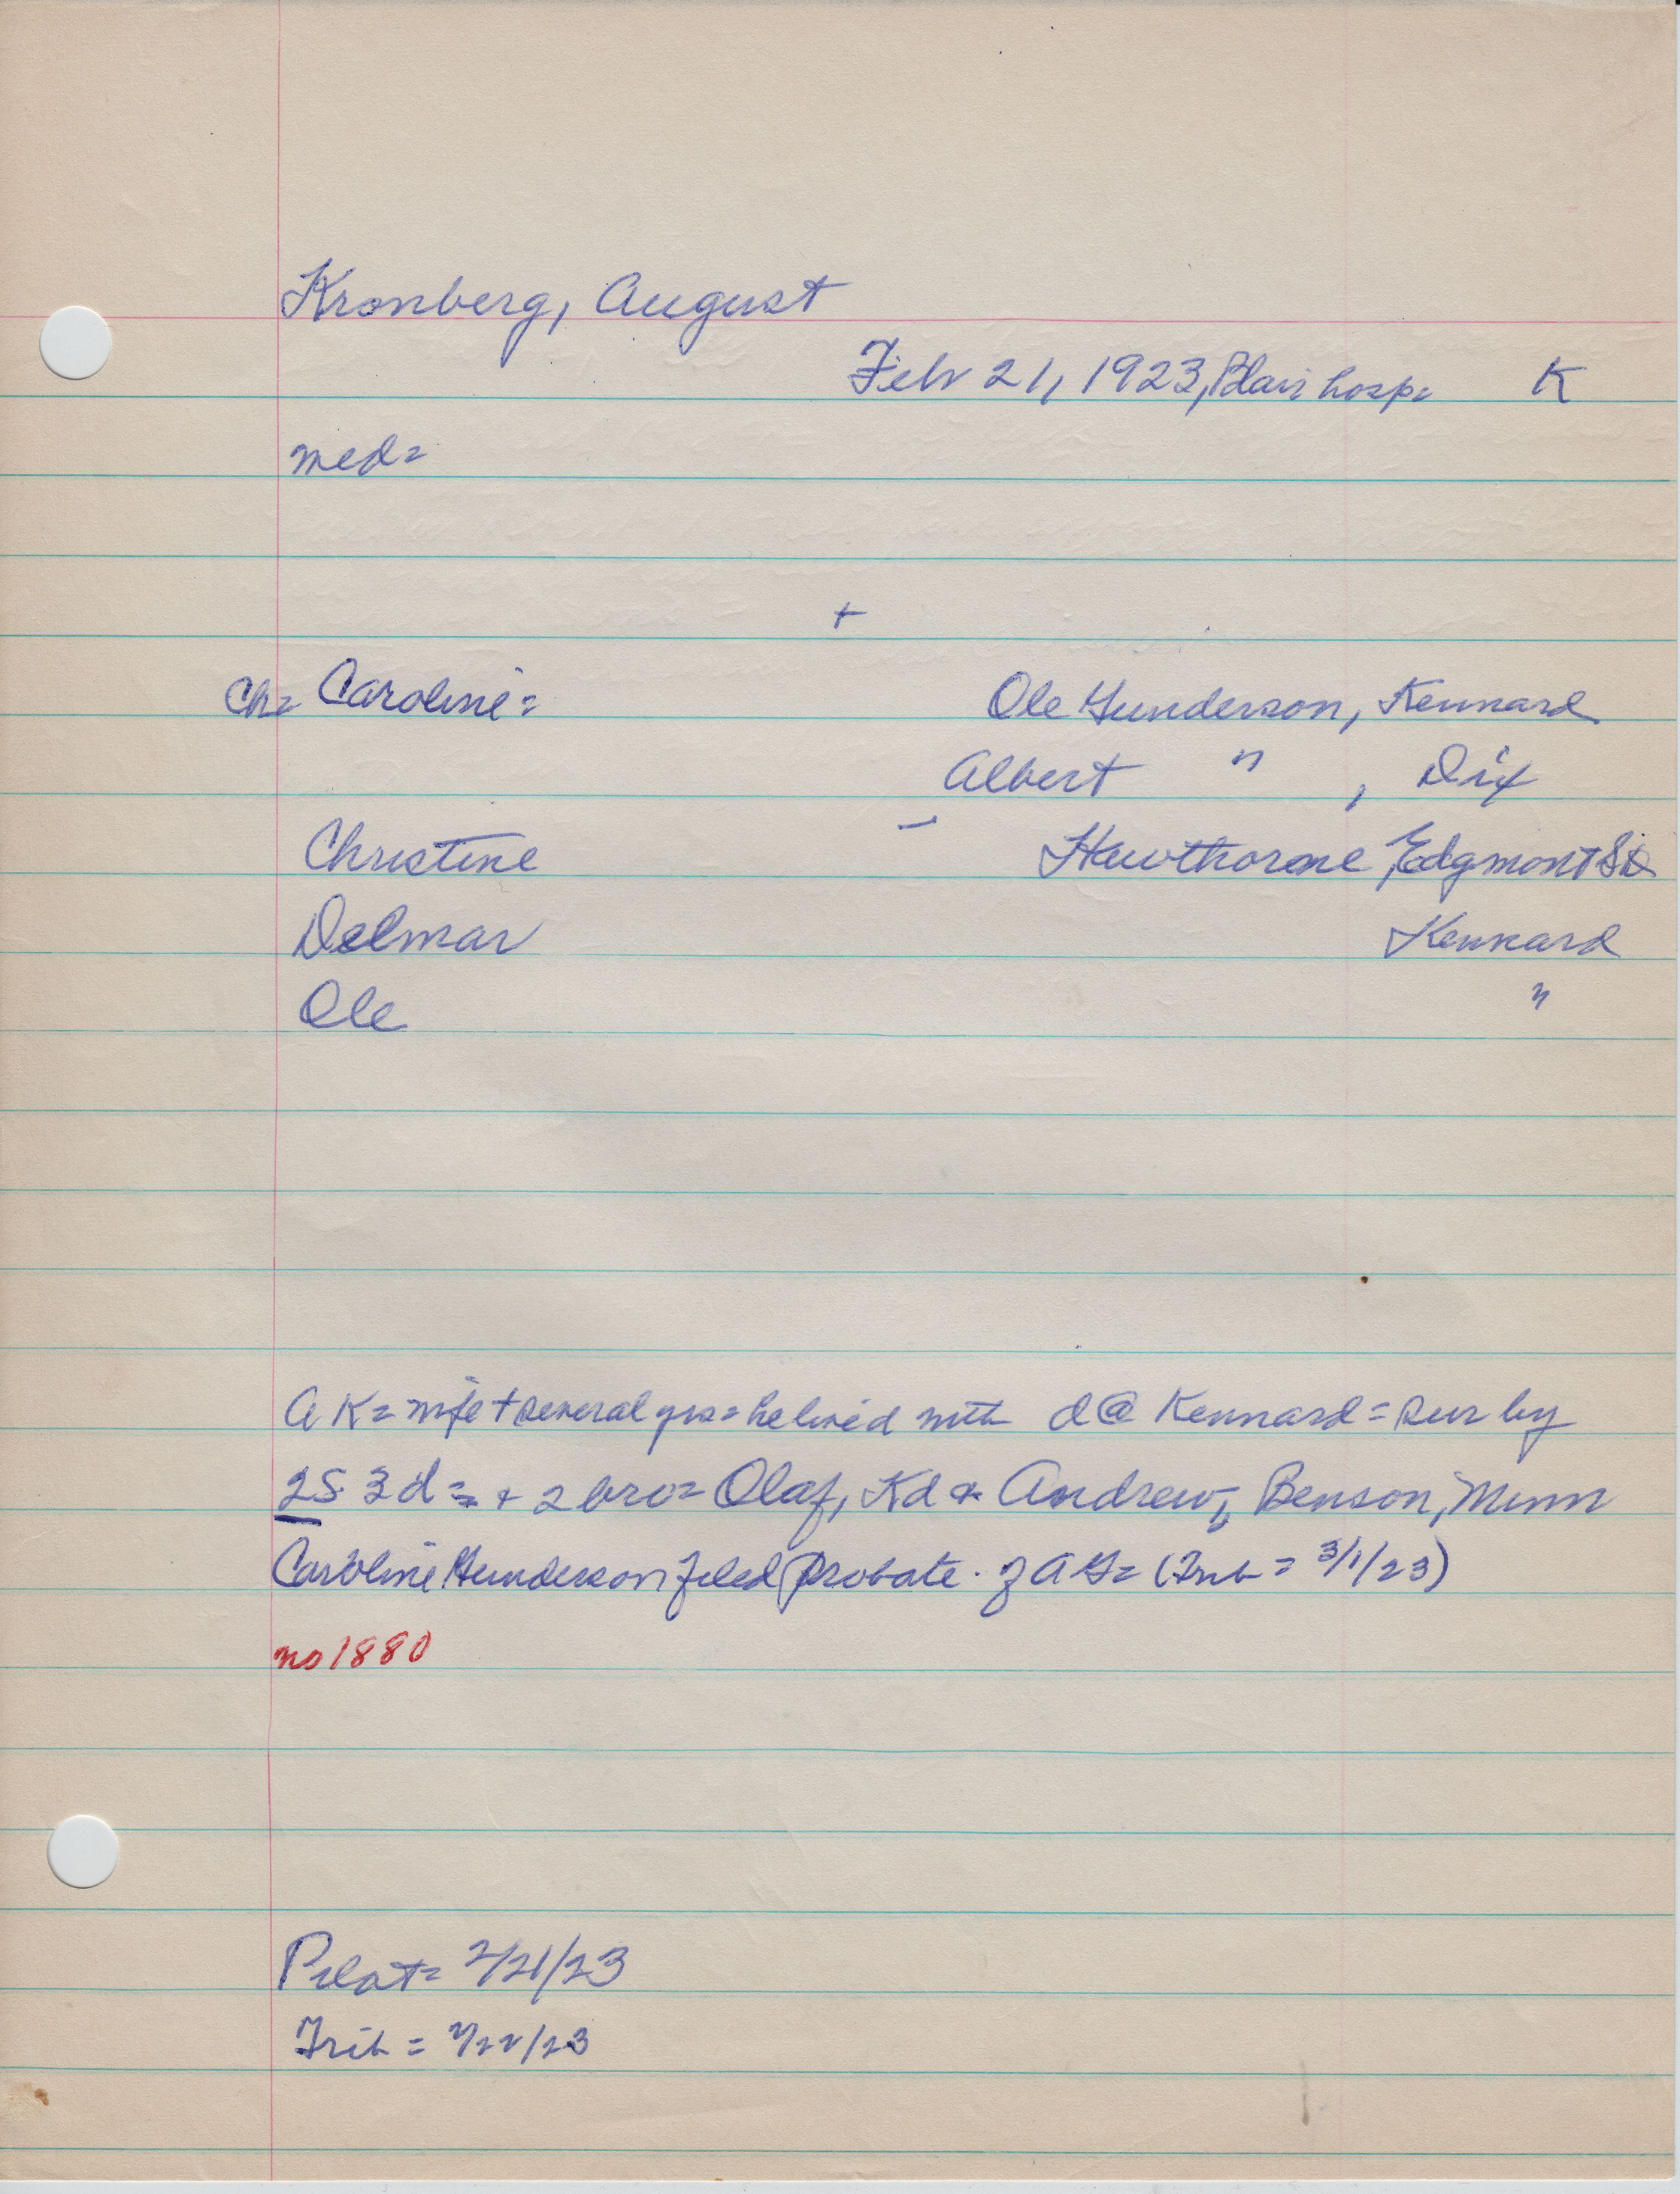 Kronberg, August
Feb 21, 1923, Blair hosp= K
med=
+
Ch= Caroline= Ole Gunderson, Kennard
Albert " , Dix
Christine — Hawthorne, Edgmont SD
Delmar Kennard
Ole "
A K= wife + several yrs= he lived with d @ Kennard = sur by
2S 3d = + 2 bro= Olaf, Kd & Andrew, Benson, Minn
Caroline Gunderson filed probate. of AG= (Trib = 3/1/23)
no 1880
Pilot= 2/21/23
Trib = 2/22/23